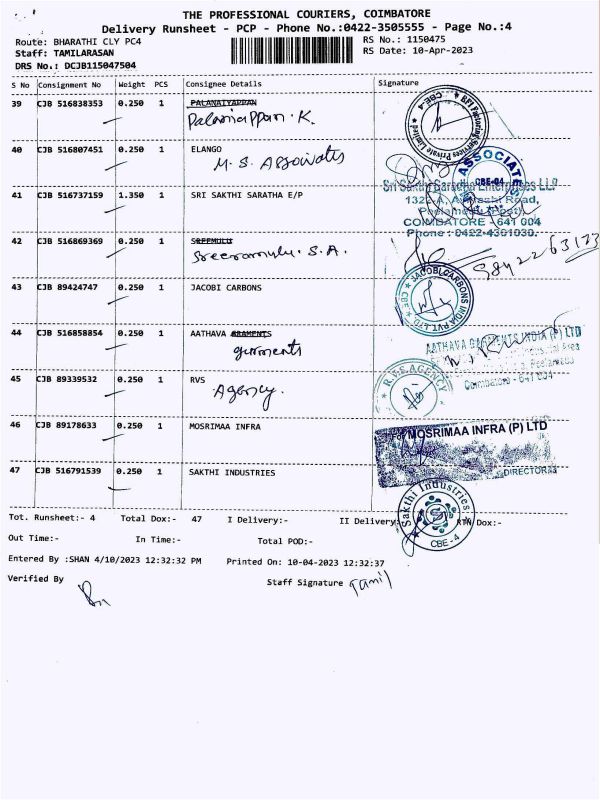 THE PROFESSIONAL COURIERS, COIMBATORE
Delivery Runsheet - PCP - Phone No.:0422-3505555 - Page No.:4
Route: BHARATHI CLY PC4
RS No.: 1150475
Staff: TAMILARASAN
RS Date: 10-Apr-2023
DRS No.: DCJB115047504
S No Consignment No Weight PCS Consignee Details Signature
39 CJB 516838353 0.250 1 PALANAIYAPPAN
Palaniappan. K.
CBE-4
RFI Factoring Services Private Limited
40 CJB 516807451 0.250 1 ELANGO
M. S. Associates
ASSOCIATES
CBE-04
41 CJB 516737159 1.350 1 SRI SAKTHI SARATHA E/P
Sri Sakthi Saratha Enterprises LLP
Road,
COIMBATORE - 641 004
Phone : 0422-4361030.
42 CJB 516869369 0.250 1 SREEMULU
Sreeramulu. S. A.
9842263123
43 CJB 89424747 0.250 1 JACOBI CARBONS
JACOBI CARBONS INDIA PVT. LTD.
CBE
44 CJB 516858854 0.250 1 AATHAVA GRAMENTS
garments
AATHAVA GARMENTS INDIA (P) LTD
Coimbatore - 641 004
45 CJB 89339532 0.250 1 RVS
Agency.
R.V.S. AGENCY
46 CJB 89178633 0.250 1 MOSRIMAA INFRA
For MOSRIMAA INFRA (P) LTD
DIRECTOR
47 CJB 516791539 0.250 1 SAKTHI INDUSTRIES
Sakthi Industries
CBE - 4
Tot. Runsheet:- 4 Total Dox:- 47 I Delivery:- II Delivery:- RTN Dox:-
Out Time:- In Time:- Total POD:-
Entered By :SHAN 4/10/2023 12:32:32 PM Printed On: 10-04-2023 12:32:37
Verified By Staff Signature Tamil